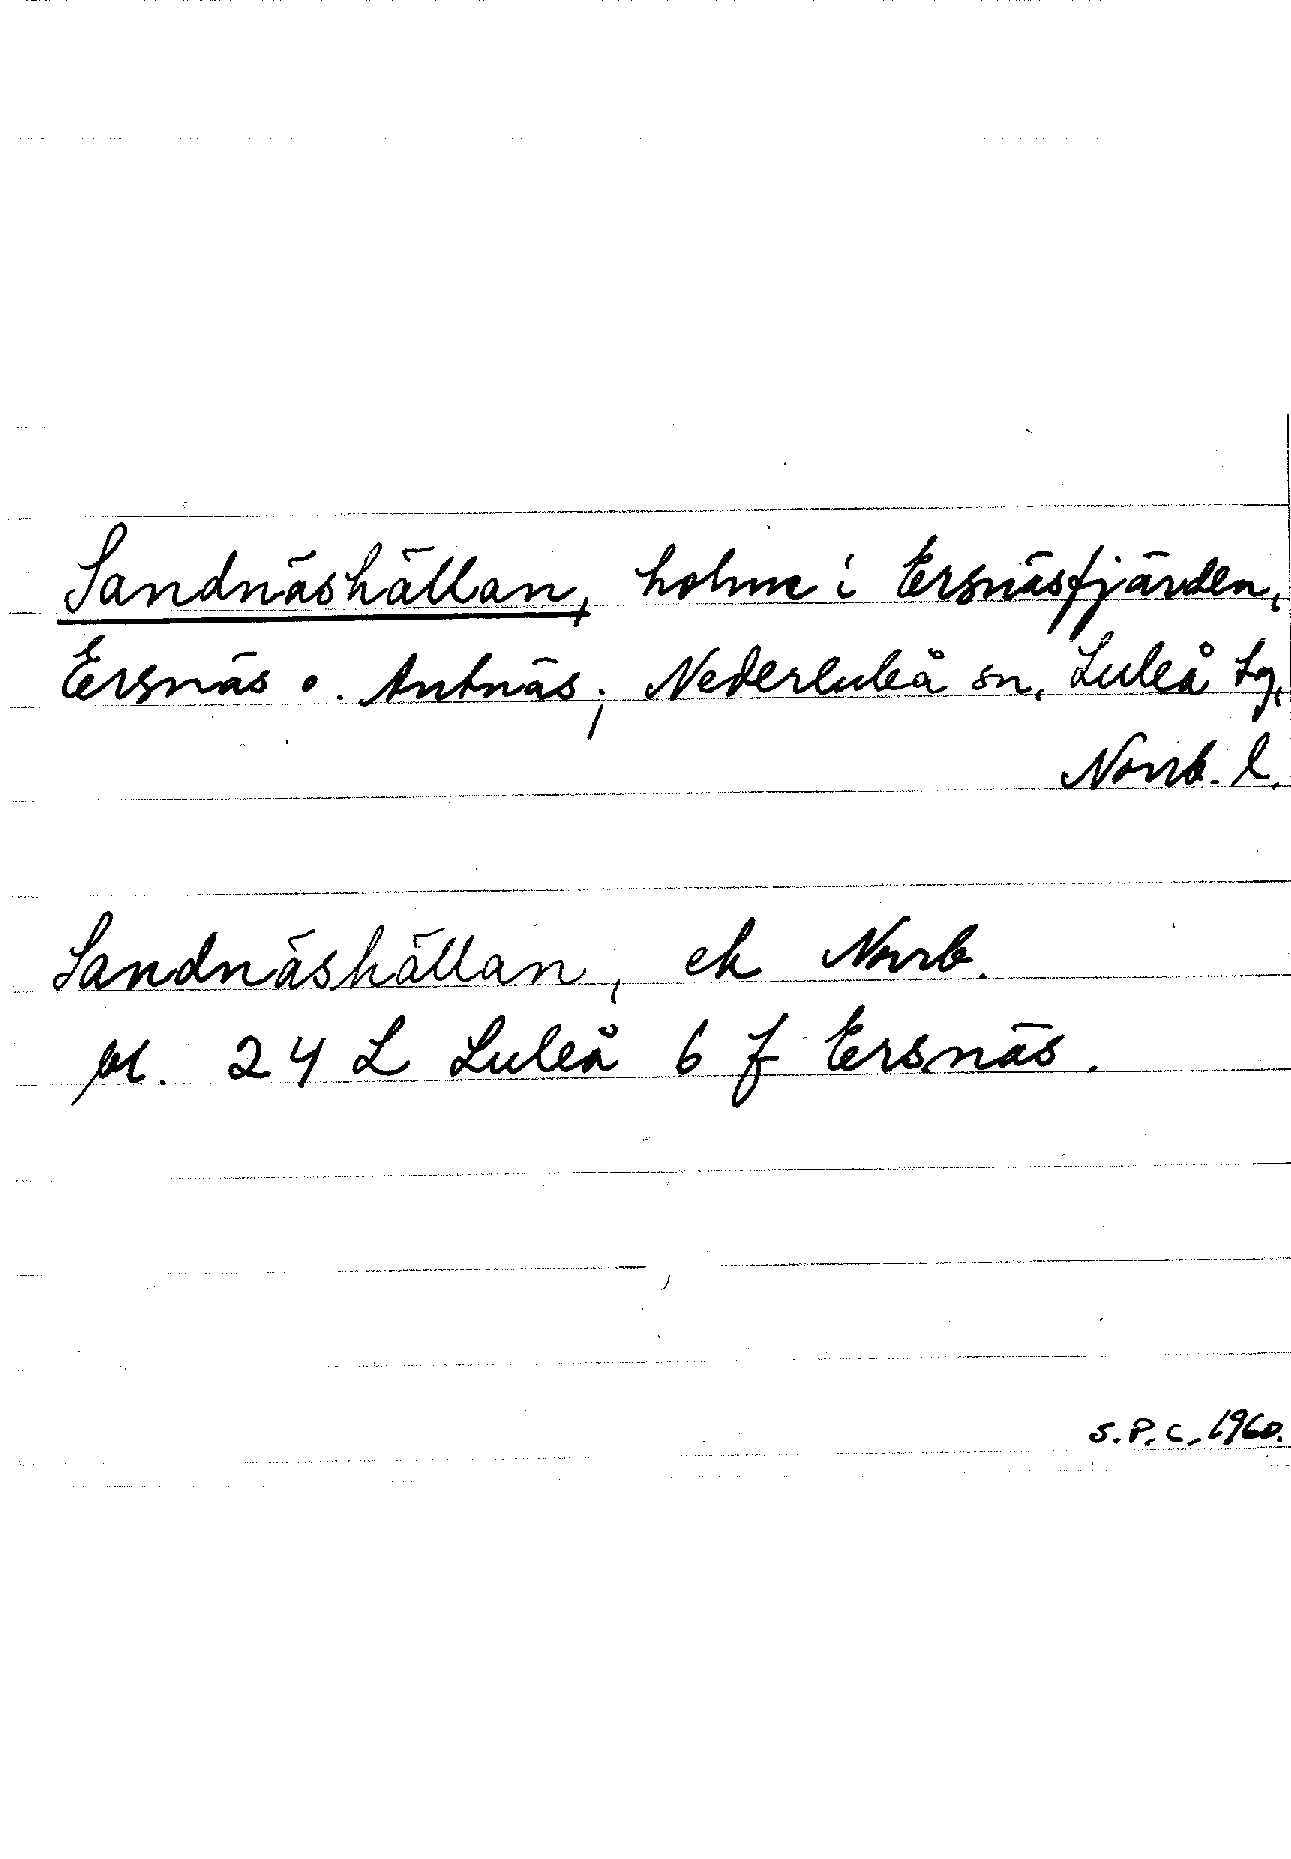 Sandnäshällan, holme i Ersnäsfjärden,
Ersnäs o. Antnäs; Nederluleå sn, Luleå tg,
Norrb. l.
Sandnäshällan, ek Norrb.
bl. 24 L Luleå 6 f Ersnäs.
S.P.C. 1960.